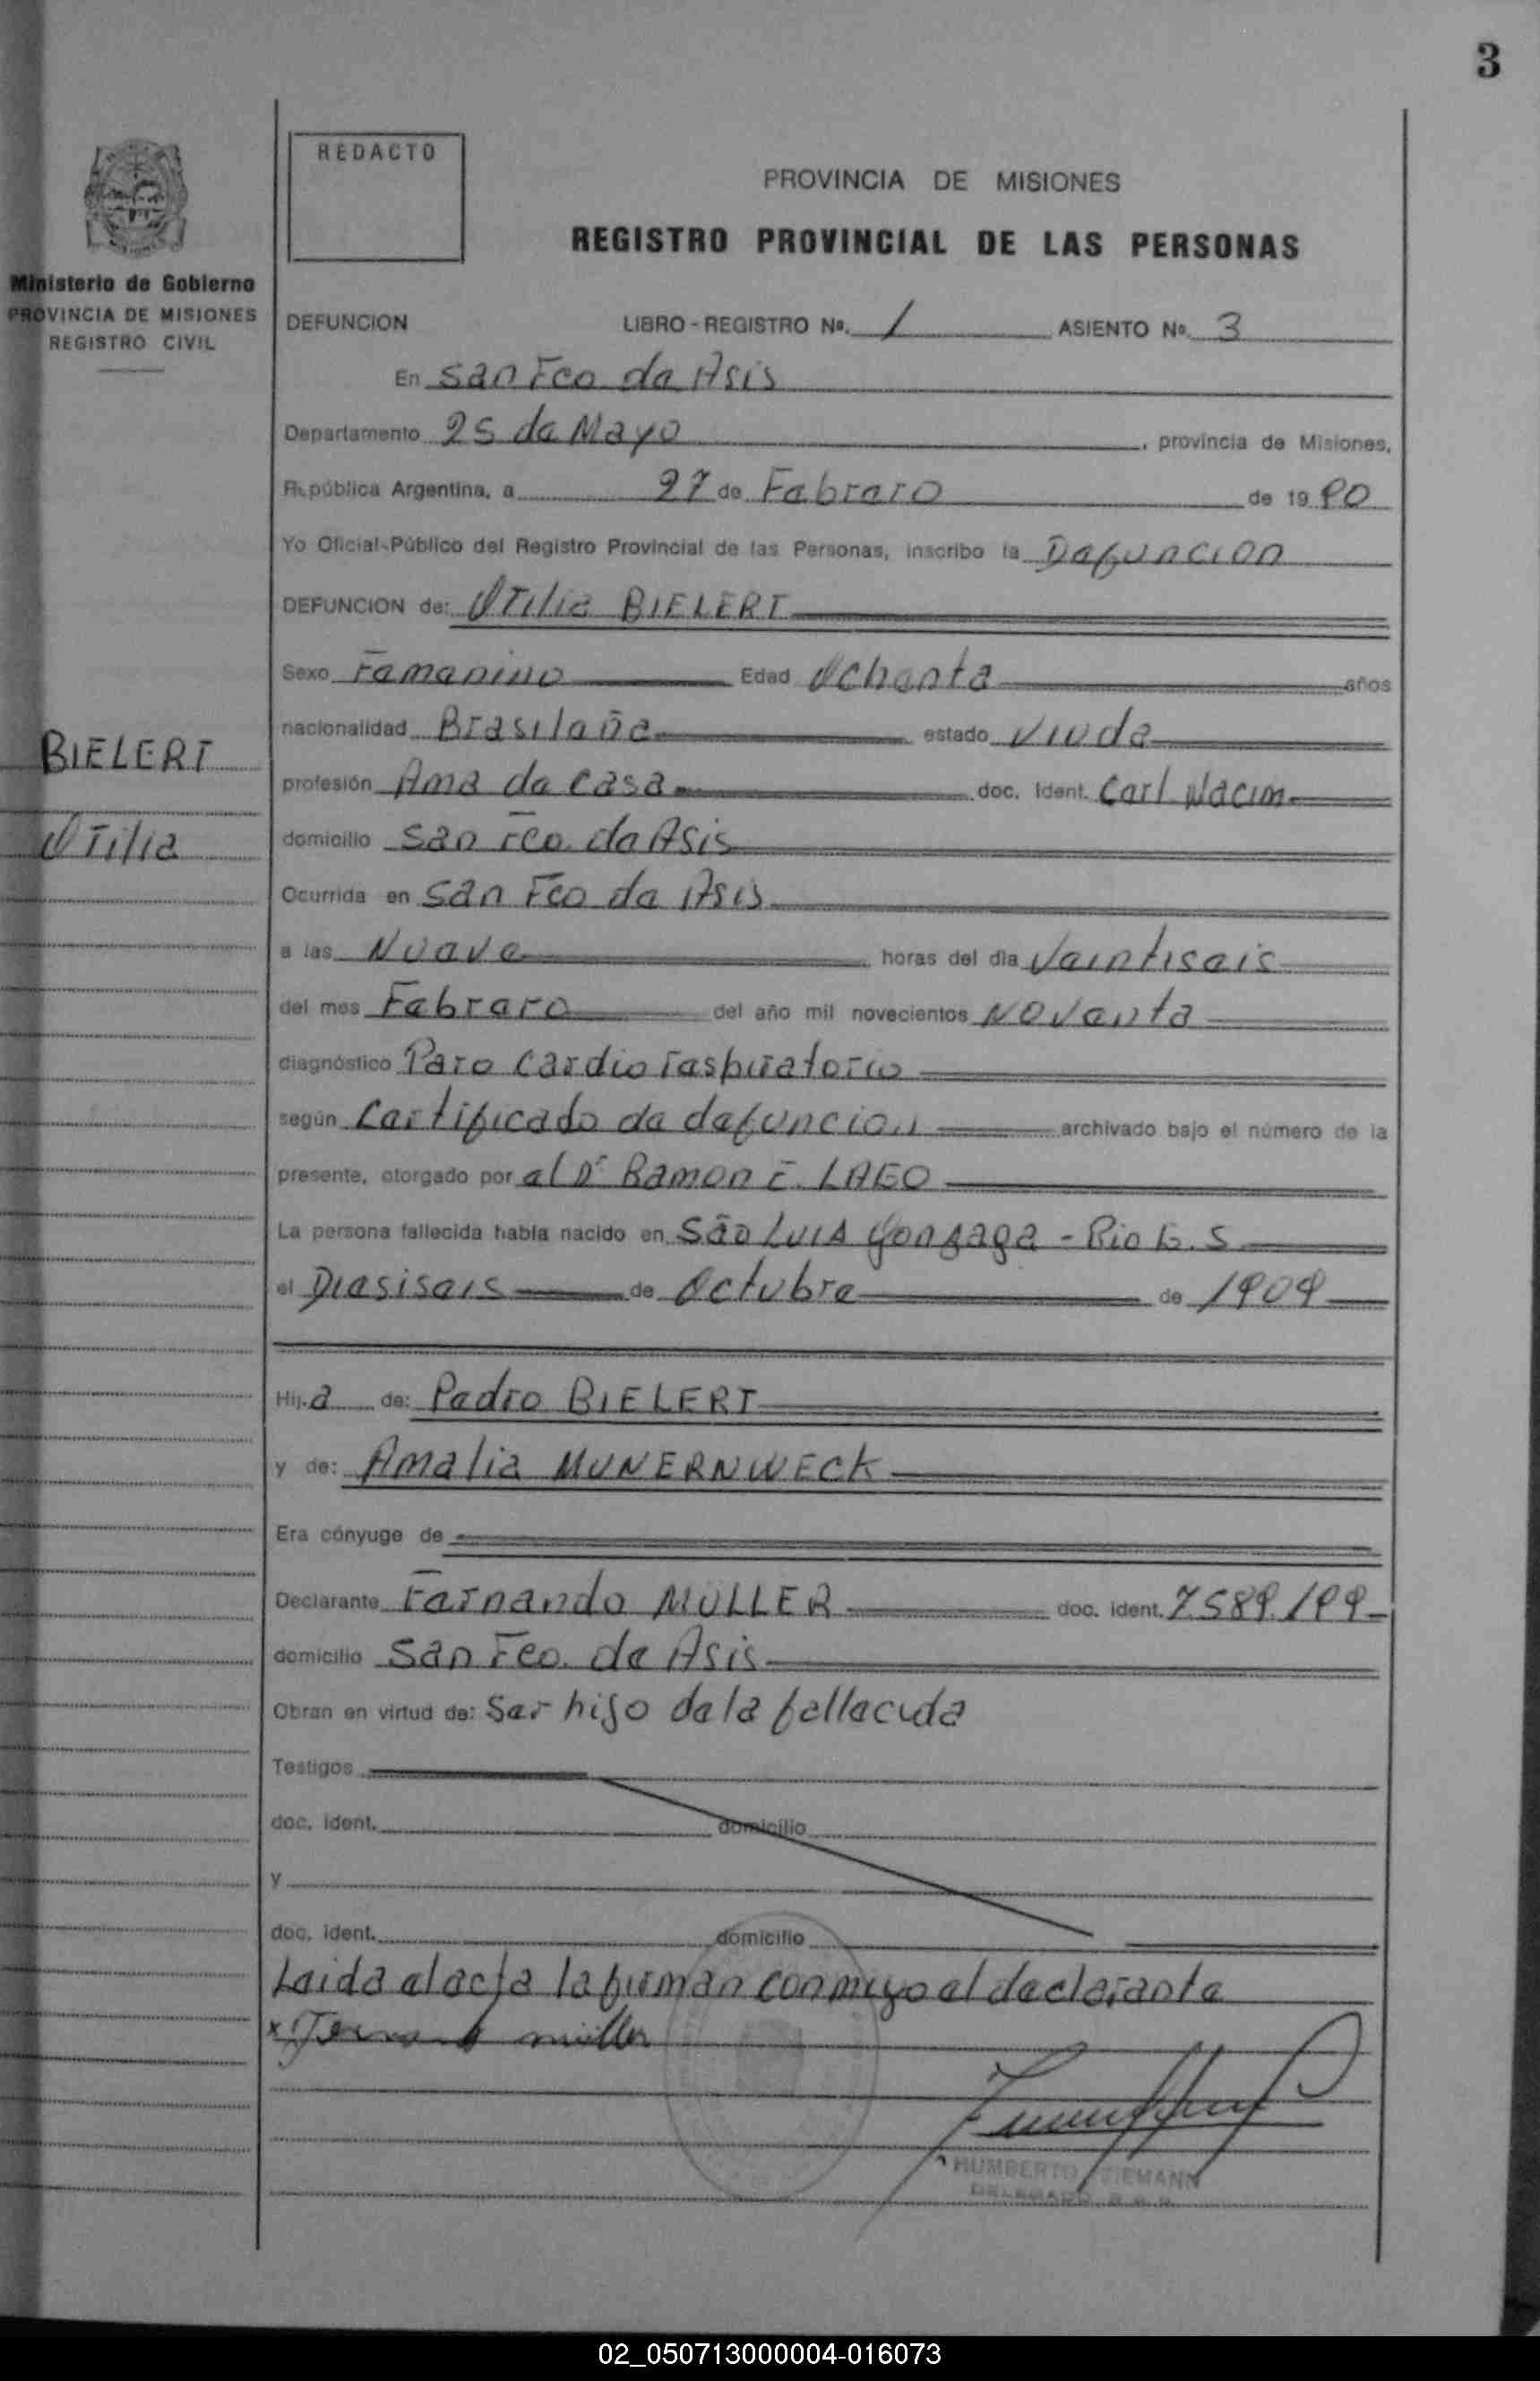 3
REDACTO
PROVINCIA DE MISIONES
REGISTRO PROVINCIAL DE LAS PERSONAS
Ministerio de Gobierno
PROVINCIA DE MISIONES
REGISTRO CIVIL
DEFUNCION LIBRO-REGISTRO Nº. 1 ASIENTO Nº. 3
En San Fco de Asis
Departamento 25 de Mayo, provincia de Misiones,
República Argentina, a 27 de Febrero de 1990
Yo Oficial Público del Registro Provincial de las Personas, inscribo la Defuncion
DEFUNCION de: Otilia BIELERT
Sexo Femenino Edad Ochenta años
nacionalidad Brasileña estado Viuda
BIELERT
profesión Ama de Casa doc. ident. Cert. Nacim
Otilia
domicilio San Fco. de Asis
Ocurrida en San Fco de Asis
a las Nueve horas del día Veintiseis
del mes Febrero del año mil novecientos Noventa
diagnóstico Paro Cardio respiratorio
según Certificado de defuncion archivado bajo el número de la
presente, otorgado por el Dr Ramon E. LAGO
La persona fallecida había nacido en São Luis Gonzaga - Rio G. S
el Dieciseis de Octubre de 1909
Hija de: Pedro BIELERT
y de: Amalia MUNERNWECK
Era cónyuge de
Declarante Fernando MÜLLER doc. ident. 7.589.199
domicilio San Fco. de Asis
Obran en virtud de: Ser hijo de la fallecida
Testigos
doc. ident. domicilio
y
doc. ident. domicilio
Leida el acta la firman conmigo el declarante
x Fernando müller
HUMBERTO TIEMANN
DELEGADO
02_050713000004-016073